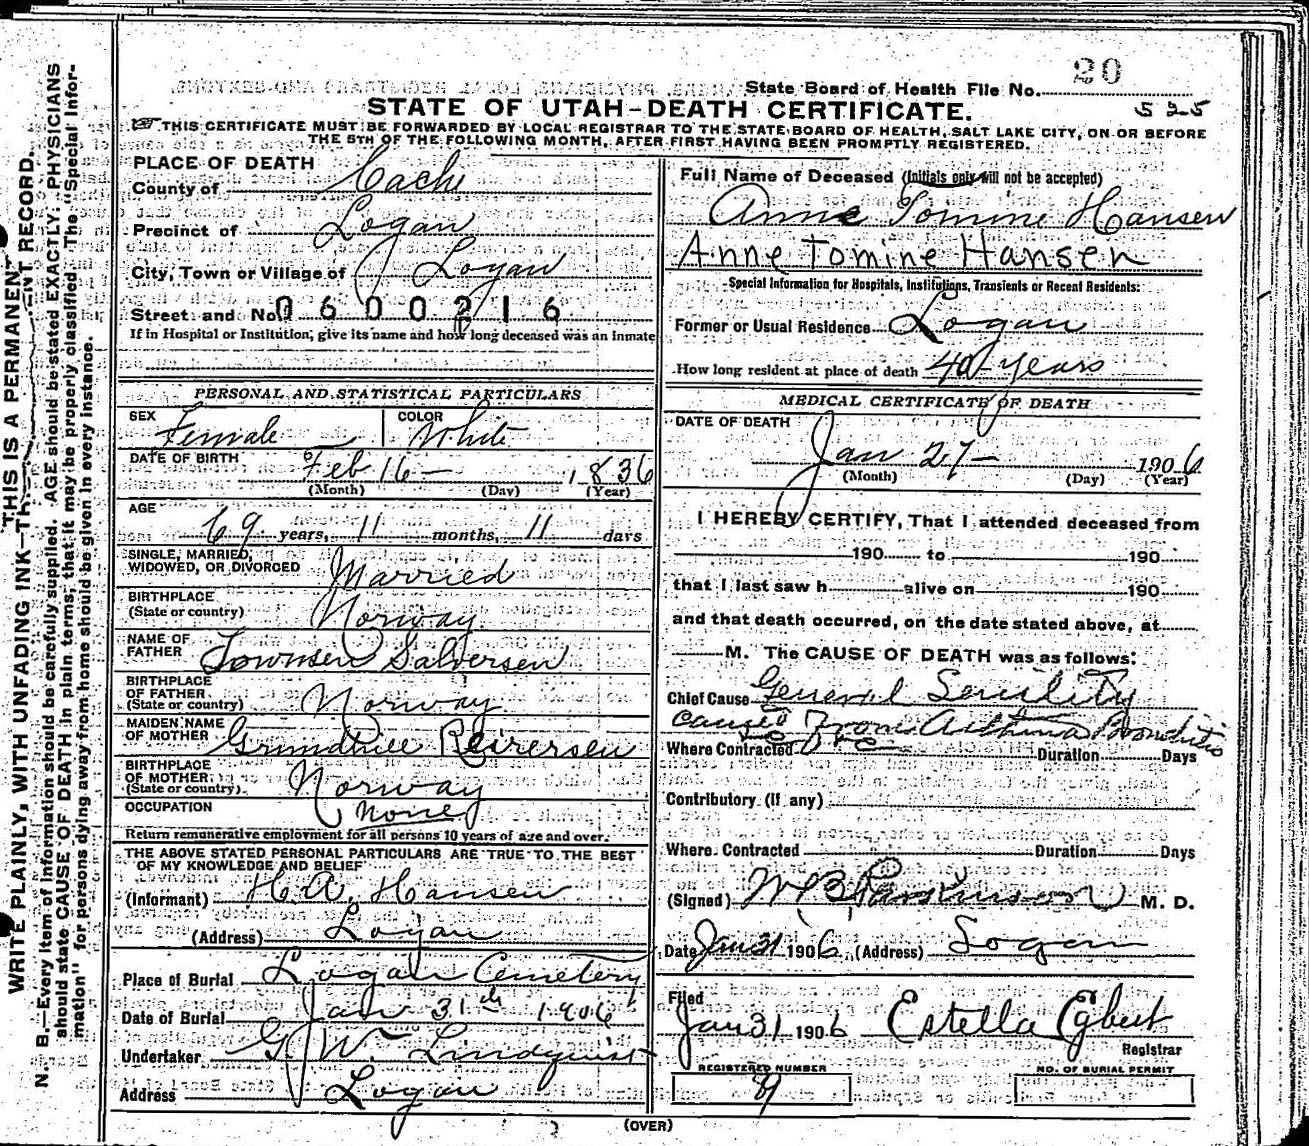 WRITE PLAINLY, WITH UNFADING INK—THIS IS A PERMANENT RECORD.
N. B.—Every item of information should be carefully supplied. AGE should be stated EXACTLY. PHYSICIANS
should state CAUSE OF DEATH in plain terms, that it may be properly classified. The "Special Infor-
mation" for persons dying away from home should be given in every instance.
20
State Board of Health File No.
525
STATE OF UTAH-DEATH CERTIFICATE.
THIS CERTIFICATE MUST BE FORWARDED BY LOCAL REGISTRAR TO THE STATE BOARD OF HEALTH, SALT LAKE CITY, ON OR BEFORE
THE 5TH OF THE FOLLOWING MONTH, AFTER FIRST HAVING BEEN PROMPTLY REGISTERED.
PLACE OF DEATH
County of Cache
Precinct of Logan
City, Town or Village of Logan
Street and No. 0600216
If in Hospital or Institution, give its name and how long deceased was an inmate
PERSONAL AND STATISTICAL PARTICULARS
SEX Female COLOR White
DATE OF BIRTH Feb 16 — 1836
(Month) (Day) (Year)
AGE
69 years, 11 months, 11 days
SINGLE, MARRIED,
WIDOWED, OR DIVORCED Married
BIRTHPLACE
(State or country) Norway
NAME OF
FATHER Salversen
BIRTHPLACE
OF FATHER
(State or country) Norway
MAIDEN NAME
OF MOTHER Reirersen
BIRTHPLACE
OF MOTHER
(State or country) Norway
OCCUPATION None
Return remunerative employment for all persons 10 years of age and over.
THE ABOVE STATED PERSONAL PARTICULARS ARE TRUE TO THE BEST
OF MY KNOWLEDGE AND BELIEF
(Informant) H. A. Hansen
(Address) Logan
Place of Burial Logan Cemetery
Date of Burial Jan 31th 1906
Undertaker G. W. Lindquist
Address Logan
Full Name of Deceased (Initials only will not be accepted)
Anne Tomine Hansen
Anne Tomine Hansen
Special Information for Hospitals, Institutions, Transients or Recent Residents:
Former or Usual Residence Logan
How long resident at place of death 40 years
MEDICAL CERTIFICATE OF DEATH
DATE OF DEATH
Jan 27 — 1906
(Month) (Day) (Year)
I HEREBY CERTIFY, That I attended deceased from
190 to 190
that I last saw h alive on 190
and that death occurred, on the date stated above, at
M. The CAUSE OF DEATH was as follows:
Chief Cause General Senility
caused From Asthma Bronchitis
Where Contracted Duration Days
Contributory (If any)
Where Contracted Duration Days
(Signed) W B Parkinson M. D.
Date Jan 31 1906 (Address) Logan
Filed
Jan 31 1906 Estella Egbert
Registrar
REGISTERED NUMBER NO. OF BURIAL PERMIT
(OVER)